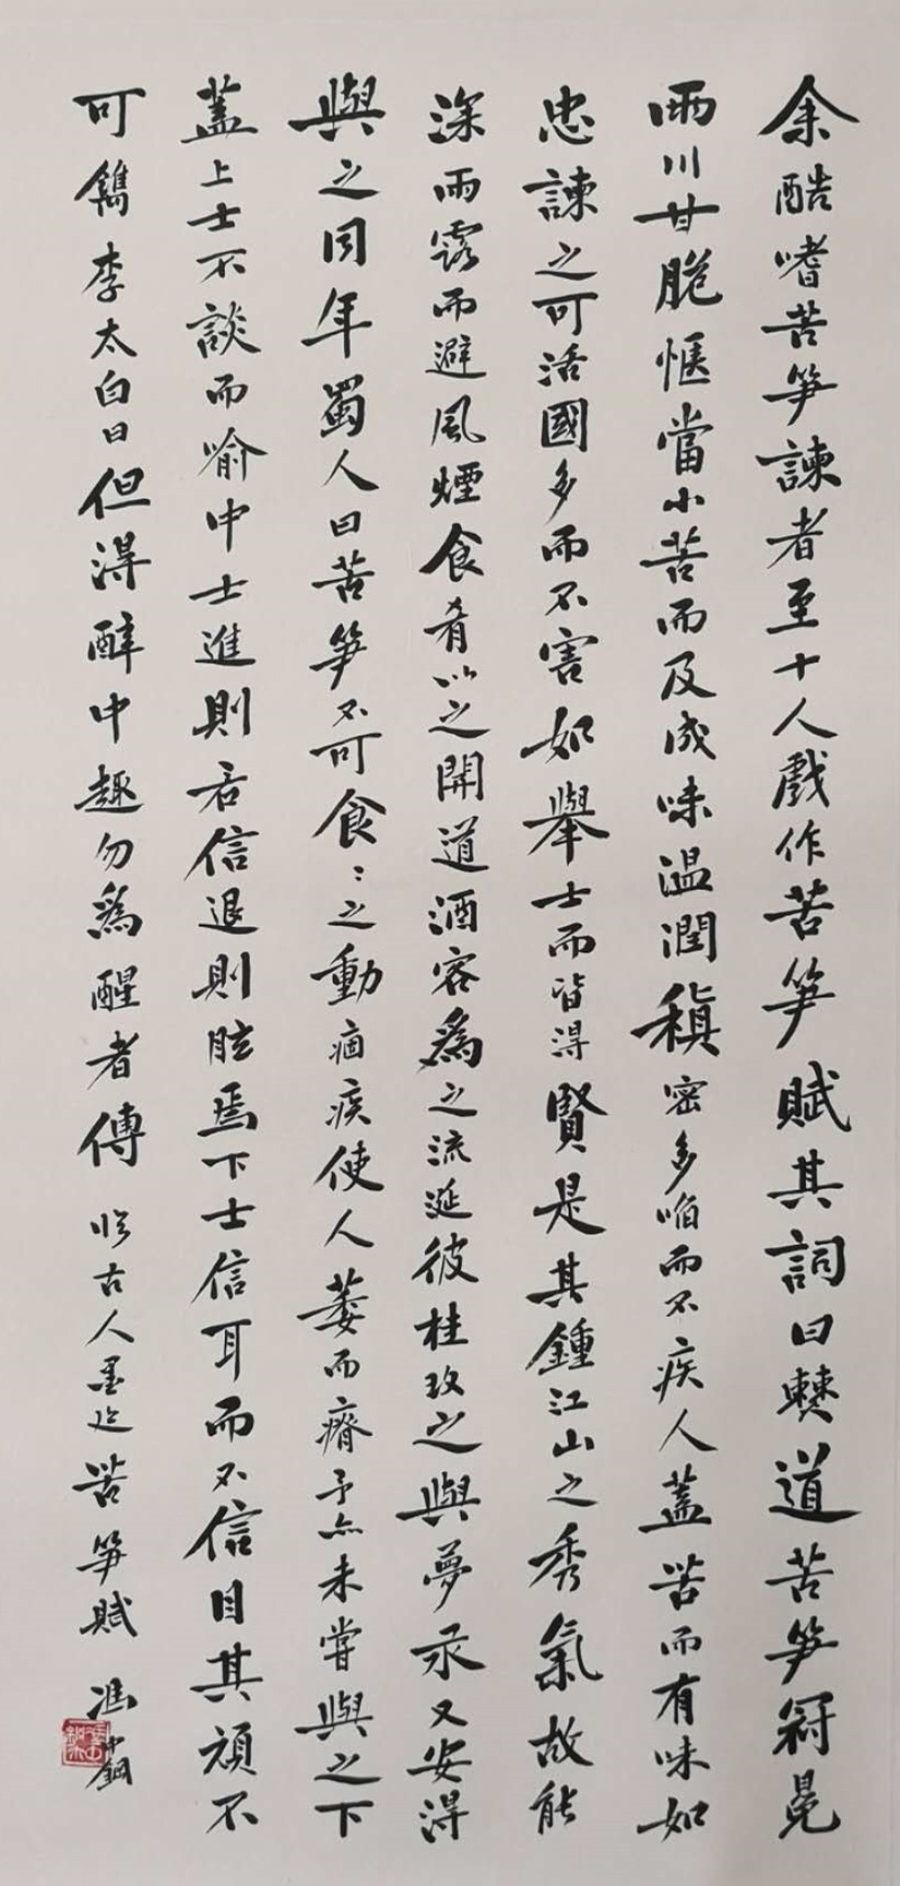 余酷嗜苦笋諫者至十人戲作苦笋賦其詞曰僰道苦笋冠冕
兩川甘脆愜當小苦而及成味温潤稹密多啗而不疾人蓋苦而有味如
忠諫之可活國多而不害如舉士而皆得賢是其鍾江山之秀氣故能
深雨露而避風煙食肴以之開道酒客為之流涎彼桂玫之與夢汞又安得
與之同年蜀人曰苦笋不可食:之動痼疾使人萎而瘠予亦未嘗與之下
蓋上士不談而喻中士進則若信退則眩焉下士信耳而不信目其頑不
可鐫李太白曰但得醉中趣勿為醒者傳 臨古人墨迹苦笋賦 馮中鋼